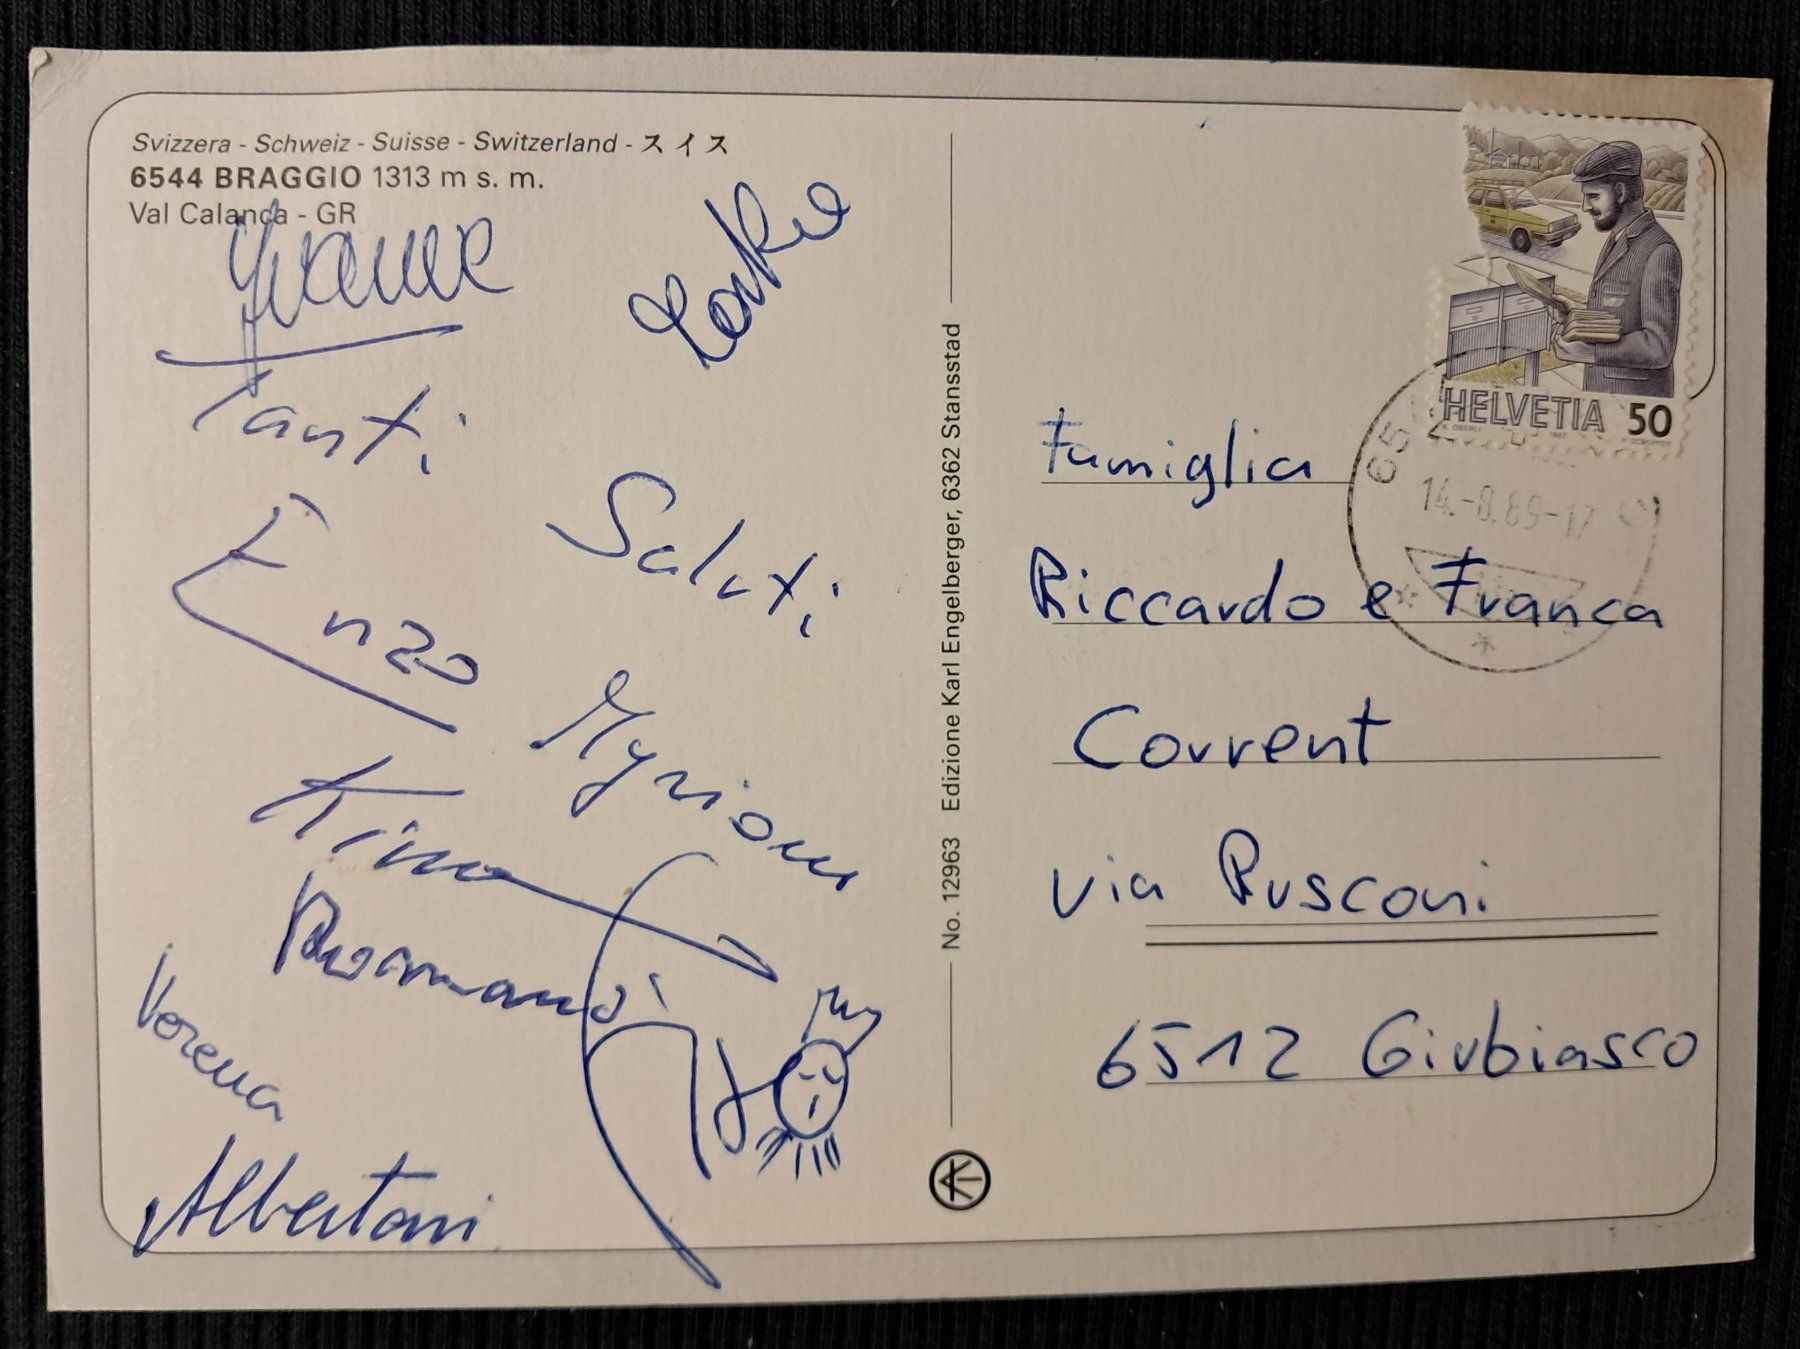 Svizzera - Schweiz - Suisse - Switzerland - スイス
6544 BRAGGIO 1313 m s. m.
Val Calanca - GR
Tanti
Saluti
Enzo
Myriam
Verena
Albertoni
No. 12963 Edizione Karl Engelberger, 6362 Stansstad
HELVETIA 50
14.-8.89-17
Famiglia
Riccardo e Franca
Corrent
via Rusconi
6512 Giubiasco